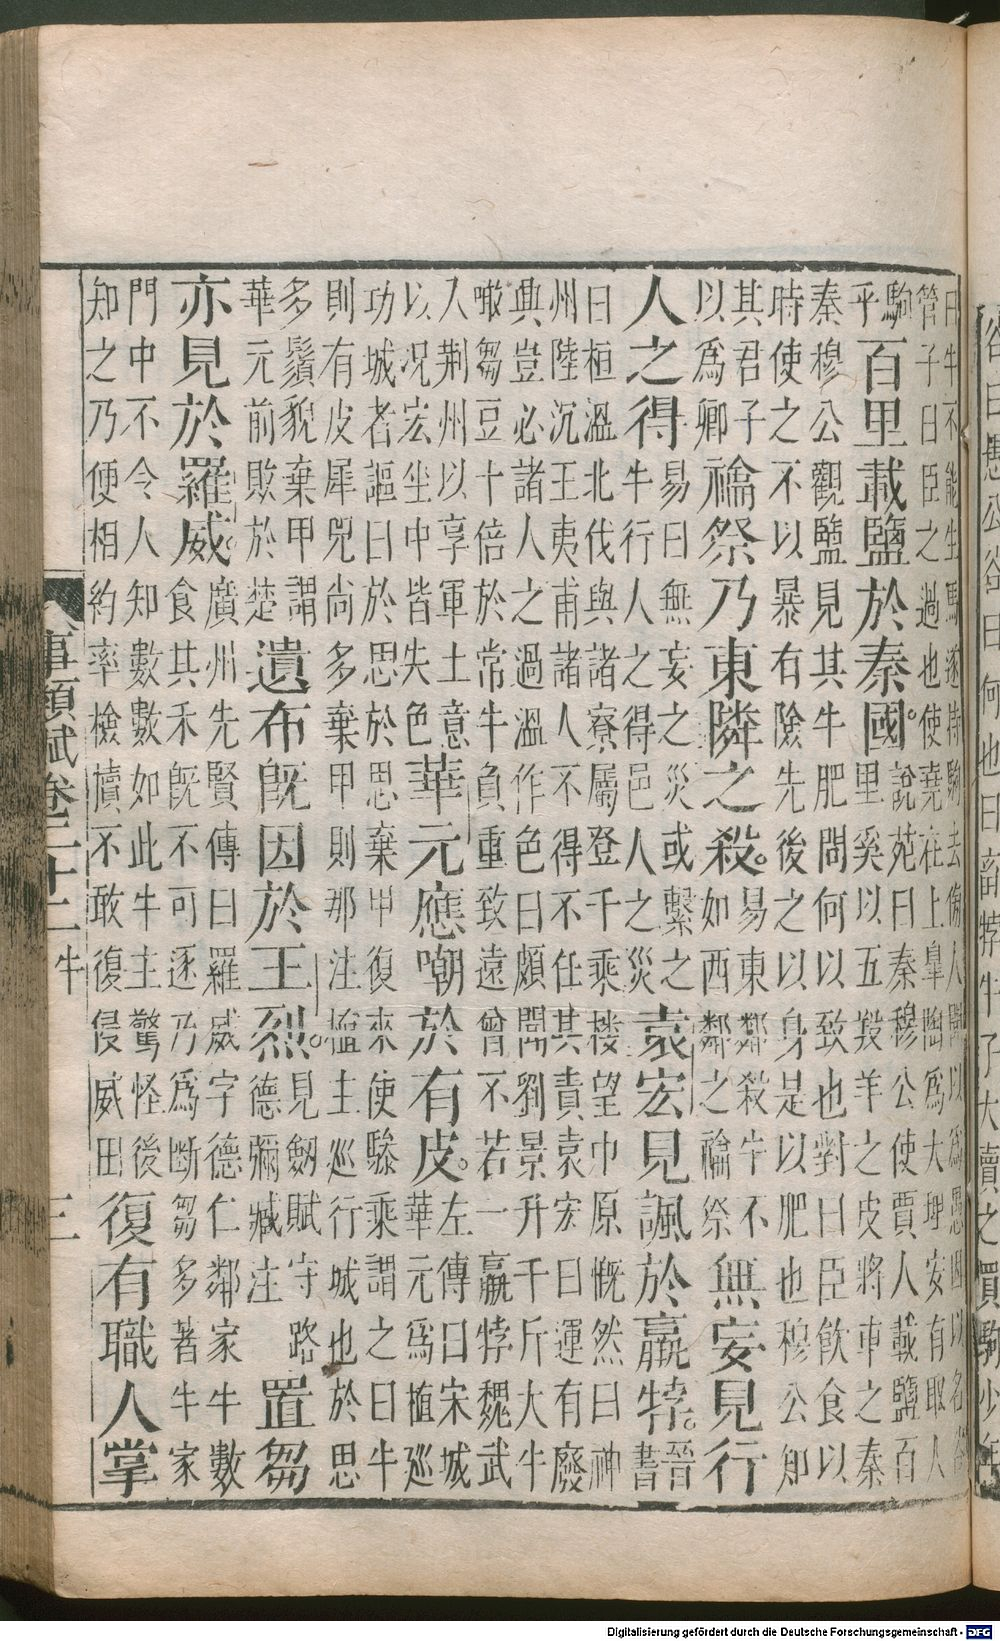 谷曰愚公谷曰何也曰畜牸牛子大賣之買駒少年
曰牛不能生馬遂持駒去傍人聞以爲愚因以名谷
管子曰臣之過也使堯在上皐陶爲大理安有取人
駒
乎
百里載鹽於秦國。
說苑曰秦穆公使賈人載鹽百
里奚以五羖羊之皮將車之秦
秦穆公觀鹽見其牛肥問何以致也對曰臣飲食以
時使之不以暴有險先後之以身是以肥也穆公卿
其君子
以爲卿
禴祭乃東隣之殺。
易東鄰殺牛不
如西鄰之禴祭
無妄見行
人之得
易曰無妄之災或繫之
牛行人之得邑人之災
袁宏見諷於羸牸。
晉
書
曰桓溫北伐與諸寮屬登千乘樓望中原慨然曰神
州陸沉王夷甫諸人不得不任其責袁宏曰運有廢
典豈必諸人之過溫作色曰頗聞劉景升千斤大牛
噉芻豆十倍於常牛負重致遠曾不若一羸牸魏武
入荆州以享軍士意
以况宏坐中皆失色
華元應嘲於有皮。
左傳曰宋城
華元爲植巡
功城者謳曰於思於思棄甲復來使驂乘謂之曰牛
則有皮犀兕尚多棄甲則那注植主巡行城也於思
多鬚貌棄甲謂
華元前敗於楚
遺布旣因於王烈。
見劔賦守路
德彌臧注
置芻
亦見於羅威。
廣州先賢傳曰羅威字德仁鄰家牛數
食其禾旣不可逐乃爲斷芻多著牛家
門中不令人知數數如此牛主驚怪後
知之乃便相約率檢犢不敢復侵威田
復有職人掌
事類賦卷二十二 牛 三
Digitalisierung gefördert durch die Deutsche Forschungsgemeinschaft - DFG